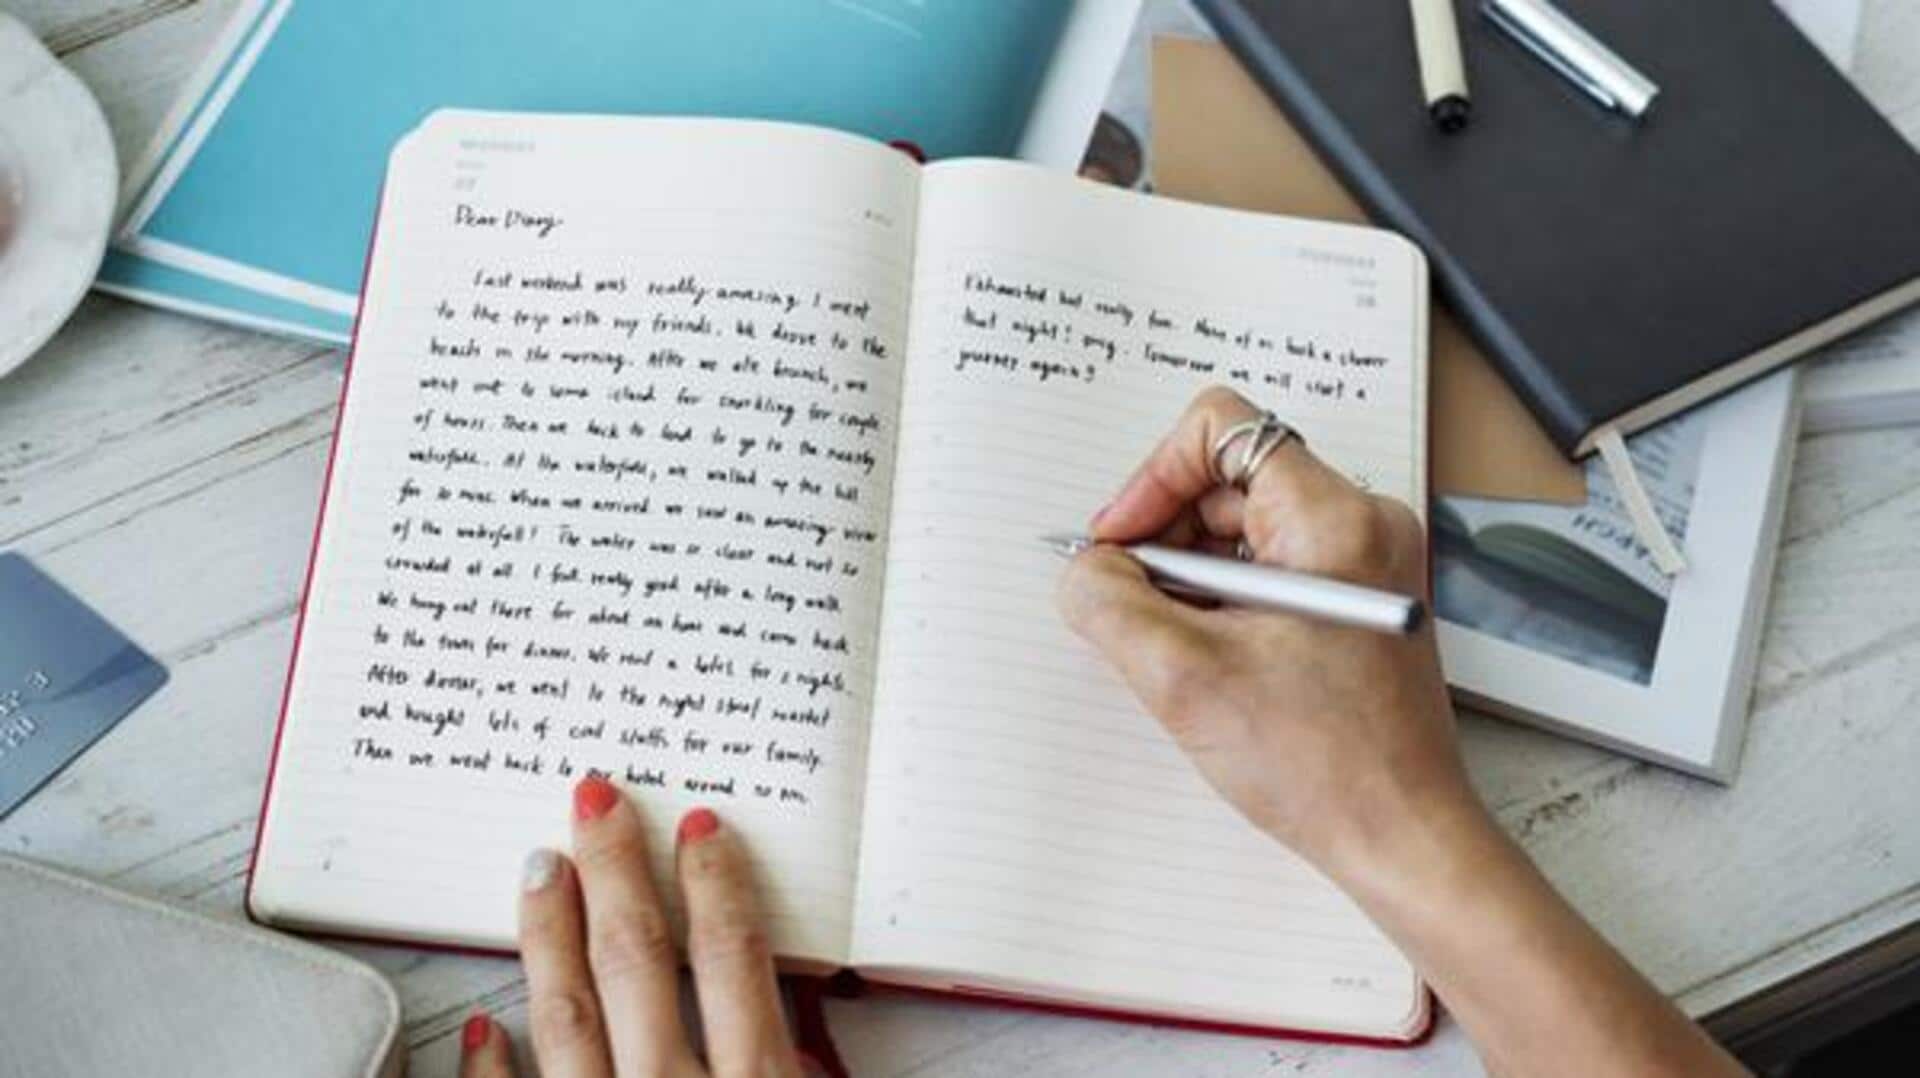 Dear Diary
Last weekend was really amazing. I went
to the trip with my friends. We drove to the
beach in the morning. After we ate brunch, we
went out to some island for snorkling for couple
of hours. Then we back to land to go to the nearby
waterfall. At the waterfall, we walked up the hill
for 20 mins. When we arrived we saw an amazing view
of the waterfall! The water was so clear and not so
crowded at all. I feel really good after a long walk.
We hang out there for about an hour and came back
to the town for dinner. We rent a hotel for 2 nights.
After dinner, we went to the night street market
and bought lots of cool stuffs for our family.
Then we went back to our hotel around 10 pm.
Exhausted but really fun. None of us took a shower
that night! omg. Tomorrow we will start a
journey again